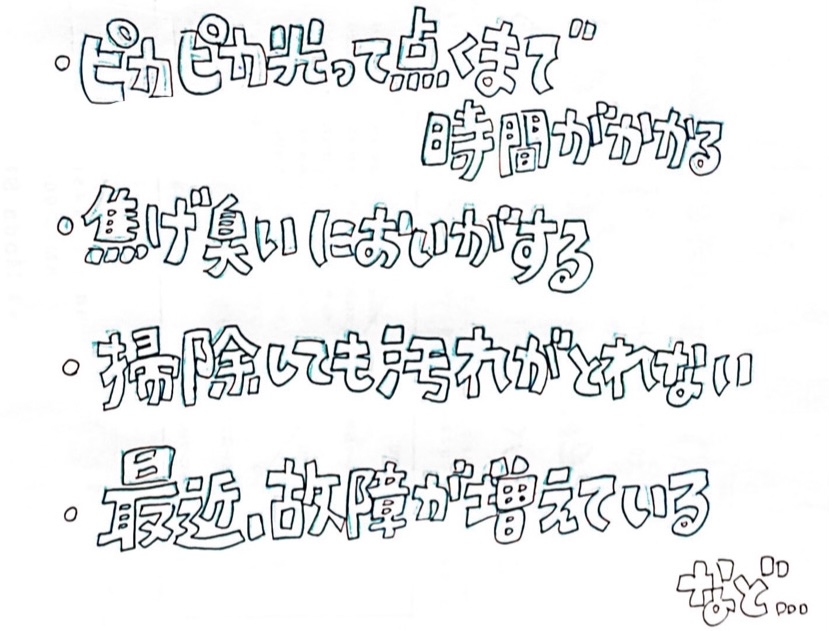 ○ピカピカ光って点くまで
時間がかかる
○焦げ臭いにおいがする
○掃除しても汚れがとれない
○最近、故障が増えている
など…